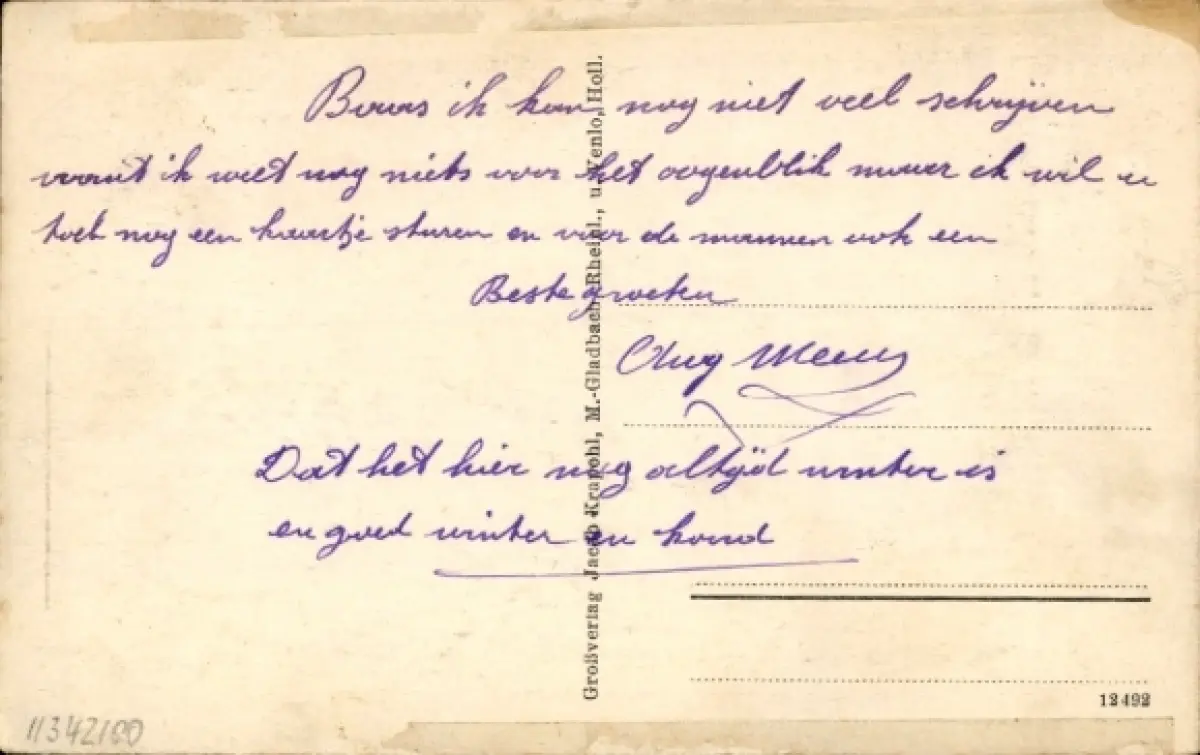 Baas ik kan nog niet veel schrijven
want ik weet nog niets voor het oogenblik maar ik wil u
toch nog een kaartje sturen en voor de mannen ook een
Beste groeten
Dat het hier nog altijd winter is
en goed winter en koud
Großverlag Jacob Krapohl, M.-Gladbach Rheinl., u. Venlo, Holl.
12492
11342100